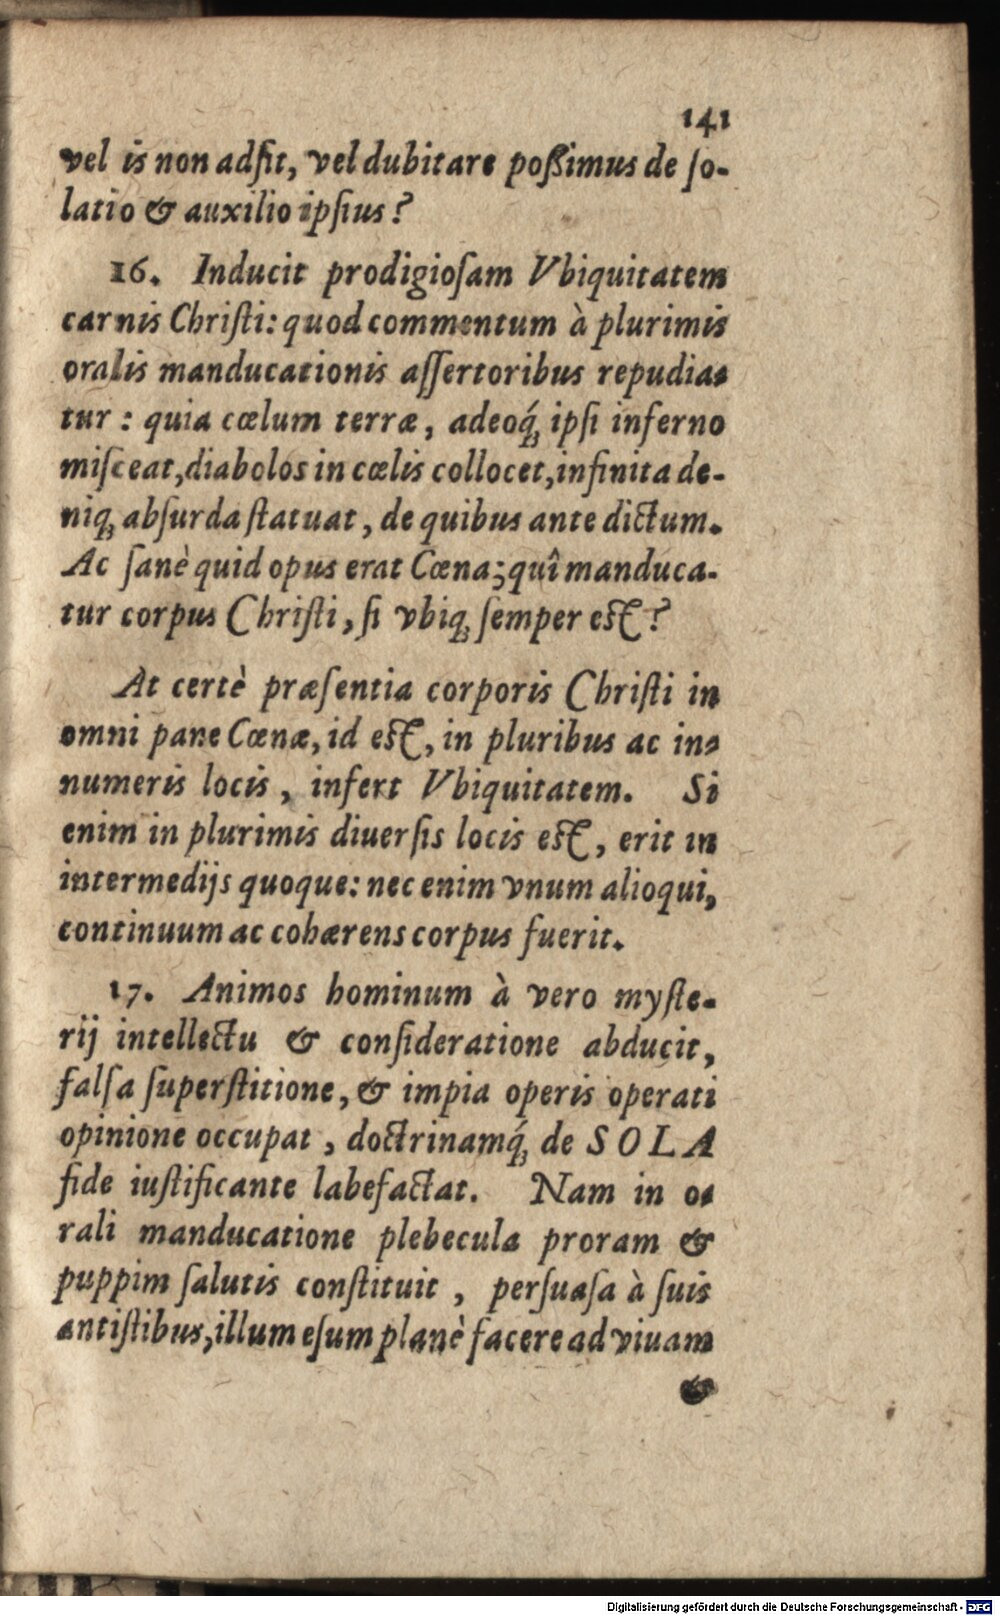 141
vel is non adſit, vel dubitare poßimus de ſo-
latio & auxilio ipſius?
16. Inducit prodigioſam Vbiquitatem
carnis Chriſti: quod commentum à plurimis
oralis manducationis aſſertoribus repudia-
tur: quia cœlum terræ, adeoq́ꝫ ipſi inferno
miſceat, diabolos in cœlis collocet, infinita de-
niqꝫ abſurda ſtatuat, de quibus ante dictum.
Ac ſanè quid opus erat Cœna; quî manduca-
tur corpus Chriſti, ſi vbiqꝫ ſemper eſt?
At certè præſentia corporis Chriſti in
omni pane Cœnæ, id eſt, in pluribus ac in-
numeris locis, infert Vbiquitatem. Si
enim in plurimis diuerſis locis eſt, erit in
intermedijs quoque: nec enim vnum alioqui,
continuum ac cohærens corpus fuerit.
17. Animos hominum à vero myſte-
rij intellectu & conſideratione abducit,
falſa ſuperſtitione, & impia operis operati
opinione occupat, doctrinamq́ꝫ de SOLA
fide iuſtificante labefactat. Nam in o-
rali manducatione plebecula proram &
puppim ſalutis conſtituit, perſuaſa à ſuis
antiſtibus, illum eſum planè facere ad viuam
&
Digitalisierung gefördert durch die Deutsche Forschungsgemeinschaft - DFG